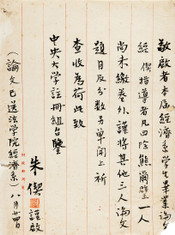 敬啟者本屆經濟系學生畢業論文
經偰指導者凡四除熊爾登一人
尚未繳卷外謹將其他三人論文
題目及分數另單開上祈
查收為荷此致
中央大學註冊組台鑒
朱偰
謹啟
(論文已送法學院經濟系)八月廿四